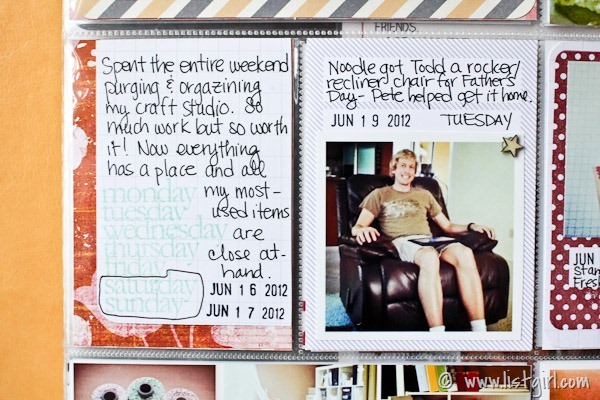 FRIENDS.
Spent the entire weekend
purging & orgazining
my craft studio. So
much work but so worth
it! Now everything
has a place and all
my most-
used items
are
close at-
hand.
monday
tuesday
wednesday
thursday
friday
saturday
sunday
JUN 16 2012
JUN 17 2012
Noodle got Todd a rocker/
recliner chair for Father's
Day - Pete helped get it home.
JUN 19 2012 TUESDAY
JUN
Fresh
© www.listgirl.com